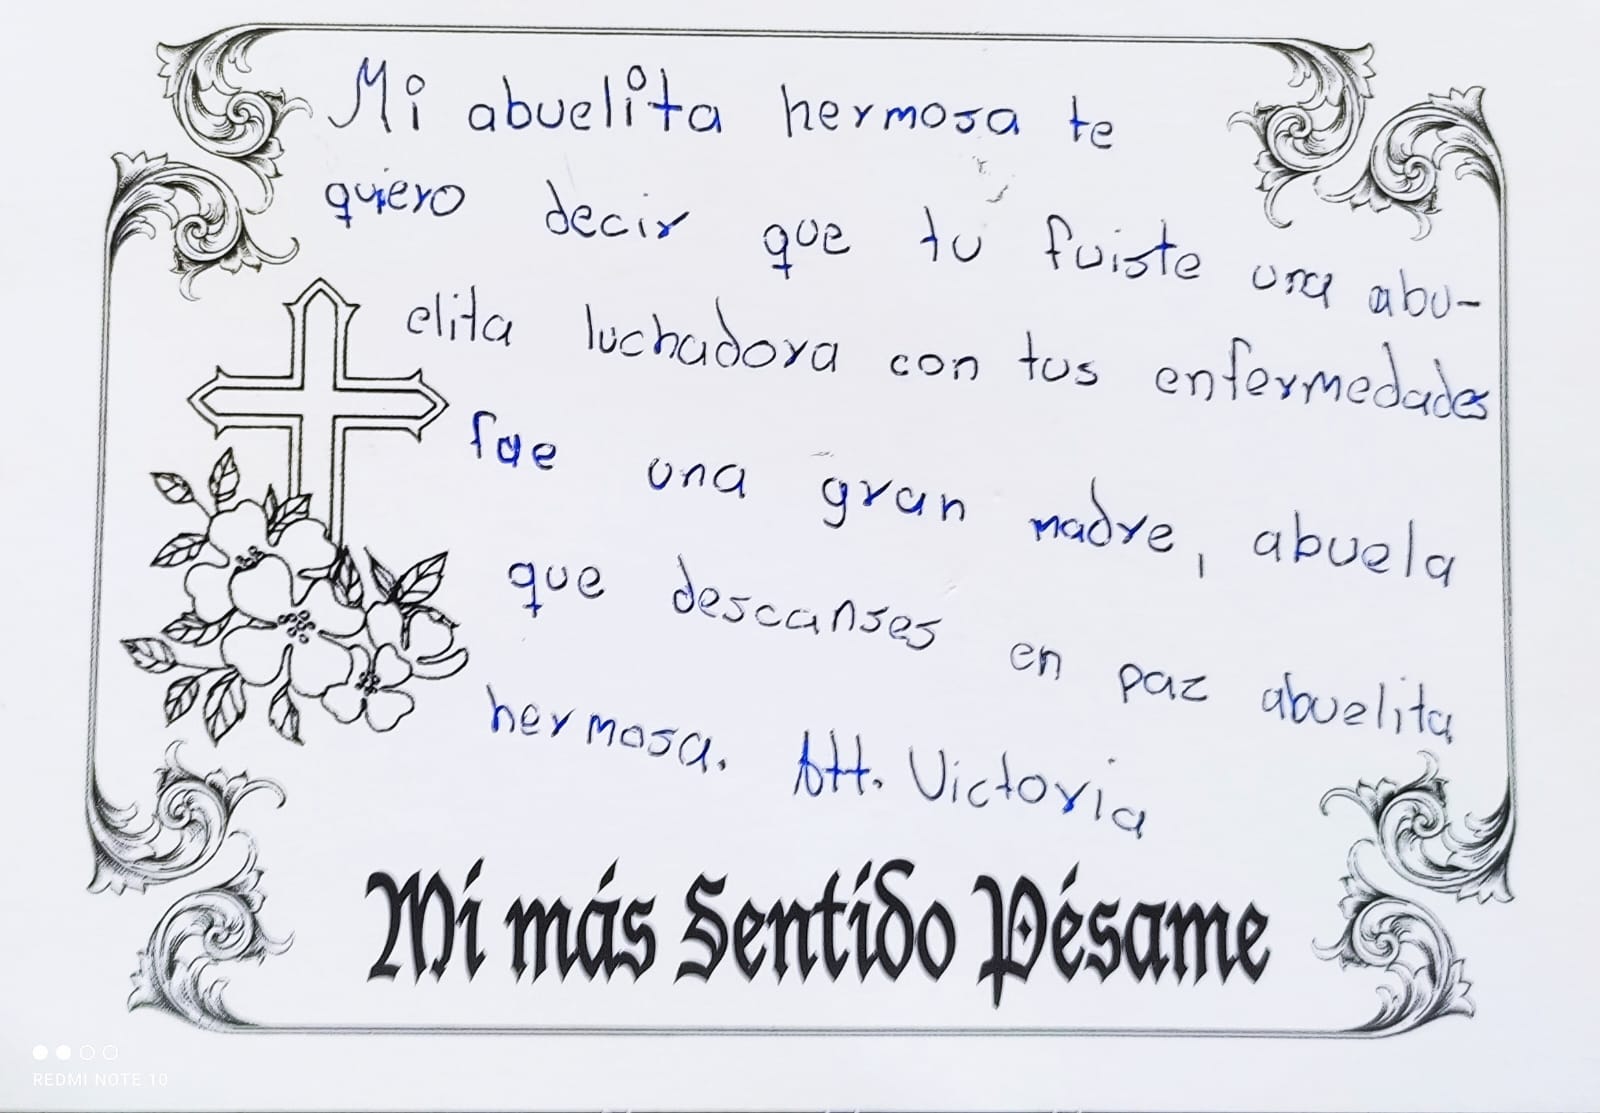 Mi abuelita hermosa te
quiero decir que tu fuiste una abu-
elita luchadora con tus enfermedades
fue una gran madre, abuela
que descanses en paz abuelita
hermosa. Att. Victoria
Mi más Sentido Pésame
REDMI NOTE 10